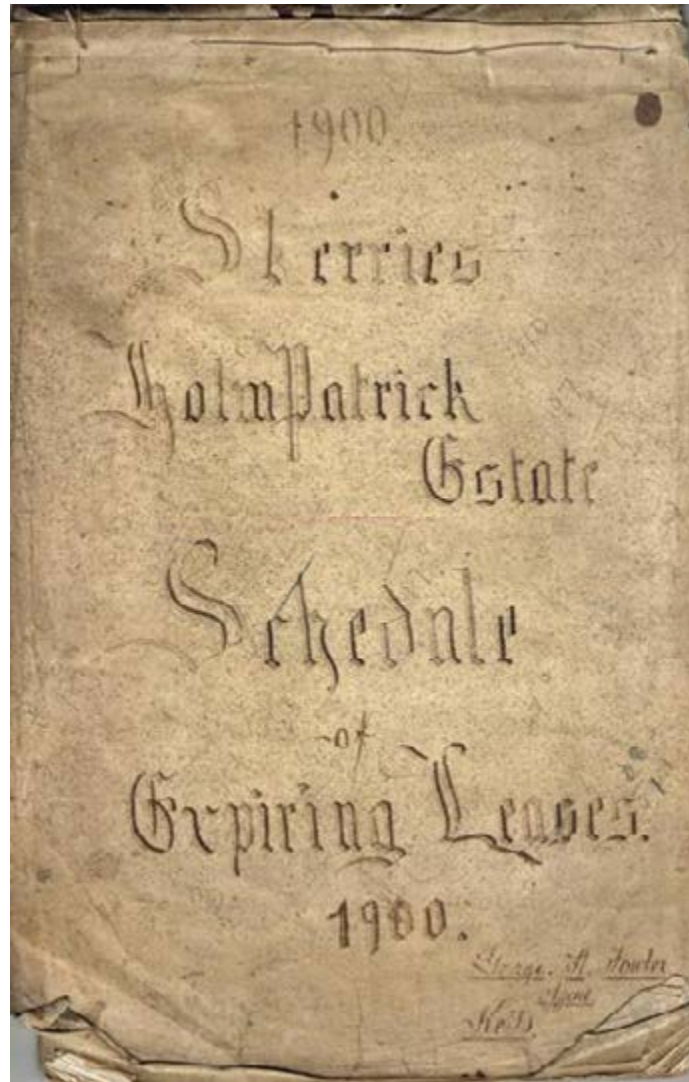 1900
Skerries
HolmPatrick
Estate
Schedule
of
Expiring Leases.
1900.
George. H. Fowler
Agent
Kells